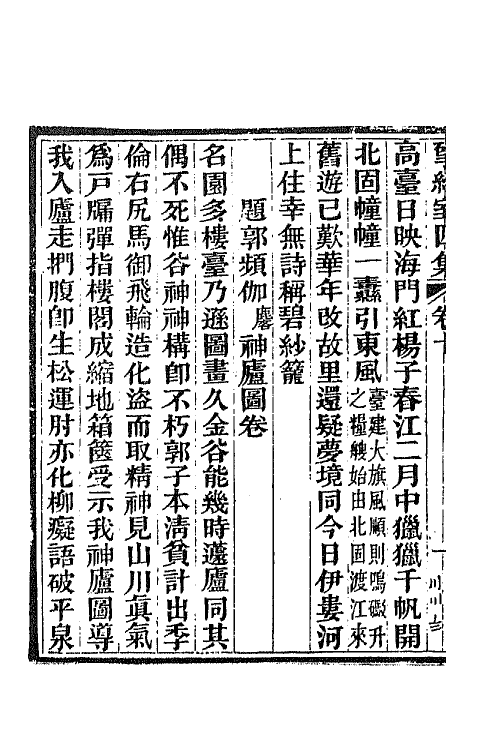 揅經室四集 卷十
高臺日映海門紅楊子春江二月中獵獵千帆開
北固幢幢一纛引東風臺建大旗風順則鳴礮升之糧艘始由北固渡江來
舊遊已歎華年改故里還疑夢境同今日伊婁河
上住幸無詩稱碧紗籠
題郭頻伽麐神廬圖卷
名園多樓臺乃遜圖畫久金谷能幾時蘧廬同其
偶不死惟谷神神構卽不朽郭子本淸貧計出季
倫右尻馬御飛輪造化盜而取精神見山川眞氣
爲戸牖彈指樓閣成縮地箱篋受示我神廬圖導
我入廬走捫腹卽生松運肘亦化柳癡語破平泉